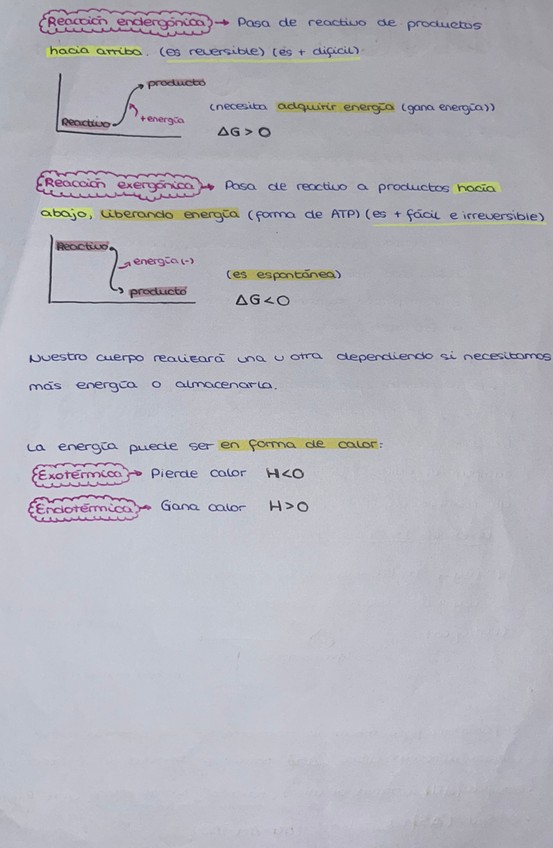 Reacción endergónica → Pasa de reactivo de productos
hacia arriba. (es reversible) (es + difícil).
producto
Reactivo
+energía
(necesita adquirir energía (gana energía))
ΔG > 0
Reacción exergónica → Pasa de reactivo a productos hacia
abajo, liberando energía (forma de ATP) (es + fácil e irreversible)
Reactivo
→ energía (-)
producto
(es espontánea)
ΔG < 0
Nuestro cuerpo realizará una u otra dependiendo si necesitamos
más energía o almacenarla.
La energía puede ser en forma de calor:
Exotérmica → Pierde calor H<0
Endotérmica → Gana calor H>0